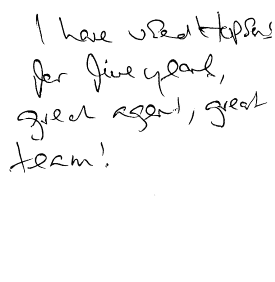 I have used
for five years,
great agent, great
team!